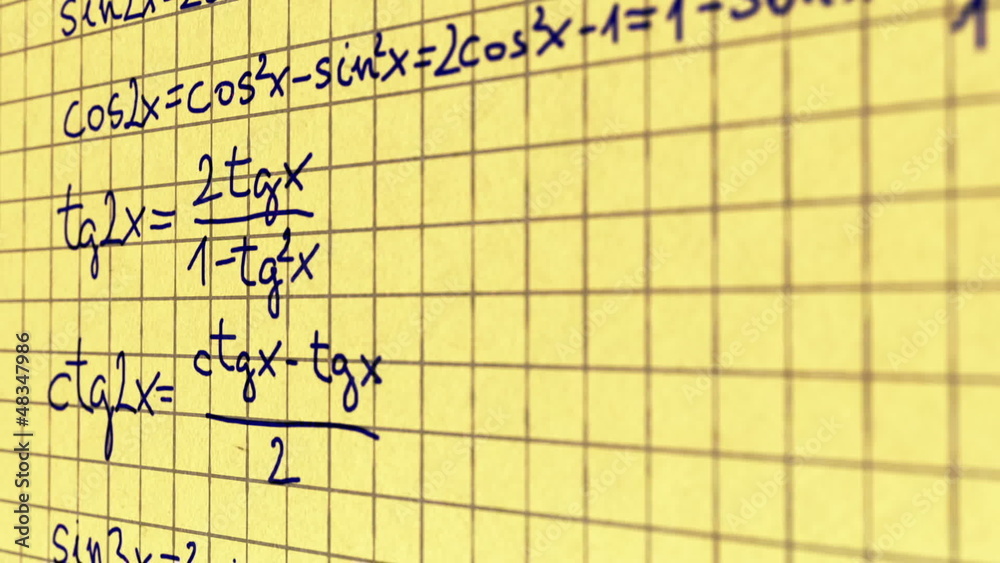 sin2x=2
cos2x=cos²x-sin²x=2cos²x-1=1-
1
tg2x= 2tgx
1-tg²x
ctg2x= ctgx-tgx
2
sin3x=3
Adobe Stock | #48347986